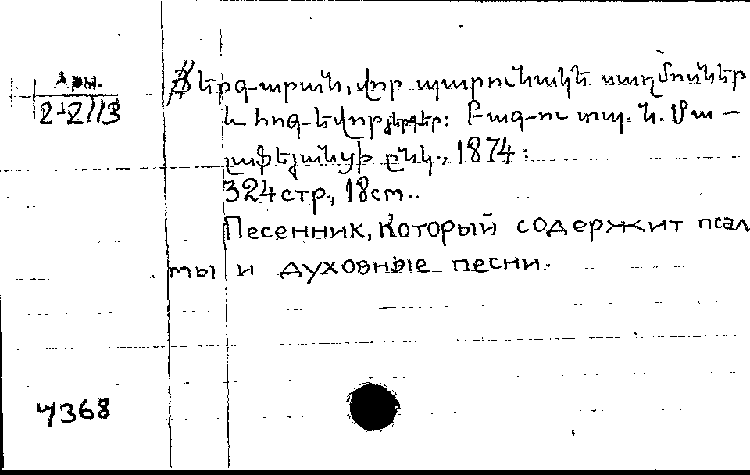 Арм.
2-2113
Երգարան, վոր պարունակե սաղմոսներ
և հոգևվոր յերգեր: Բագու տպ. Ն. Մա-
ընկ., 1874:
324 стр., 18 cm..
Песенник, который содержит псал
мы и духовные песни.
4368